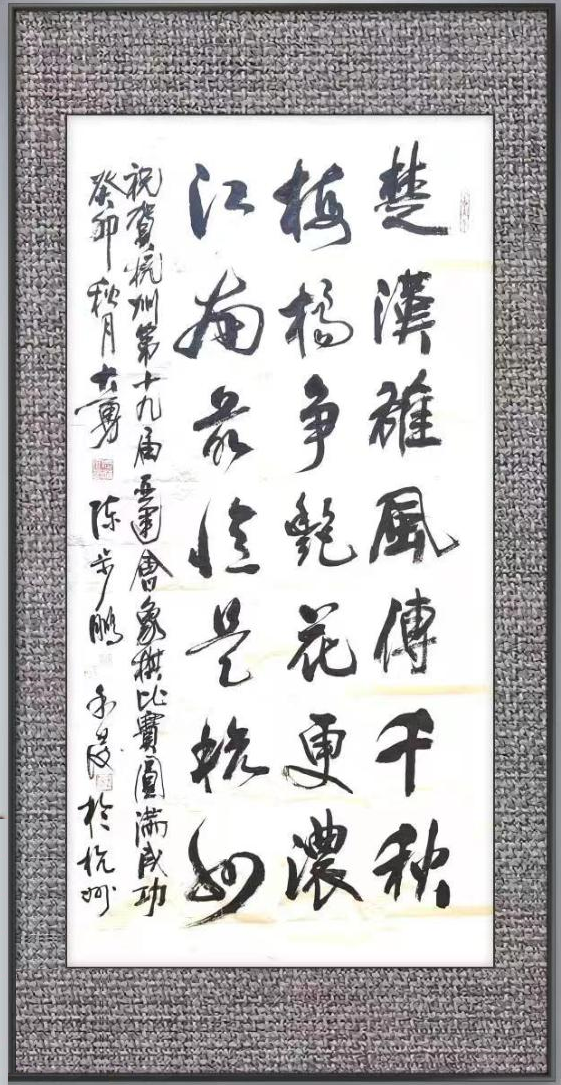 楚漢雄風傳千秋
梅橘争艷花更濃
江南最憶是杭州
祝賀杭州第十九届亚運會象棋比賽圓满成功
癸卯秋月大勇 陈步鹏 於杭州